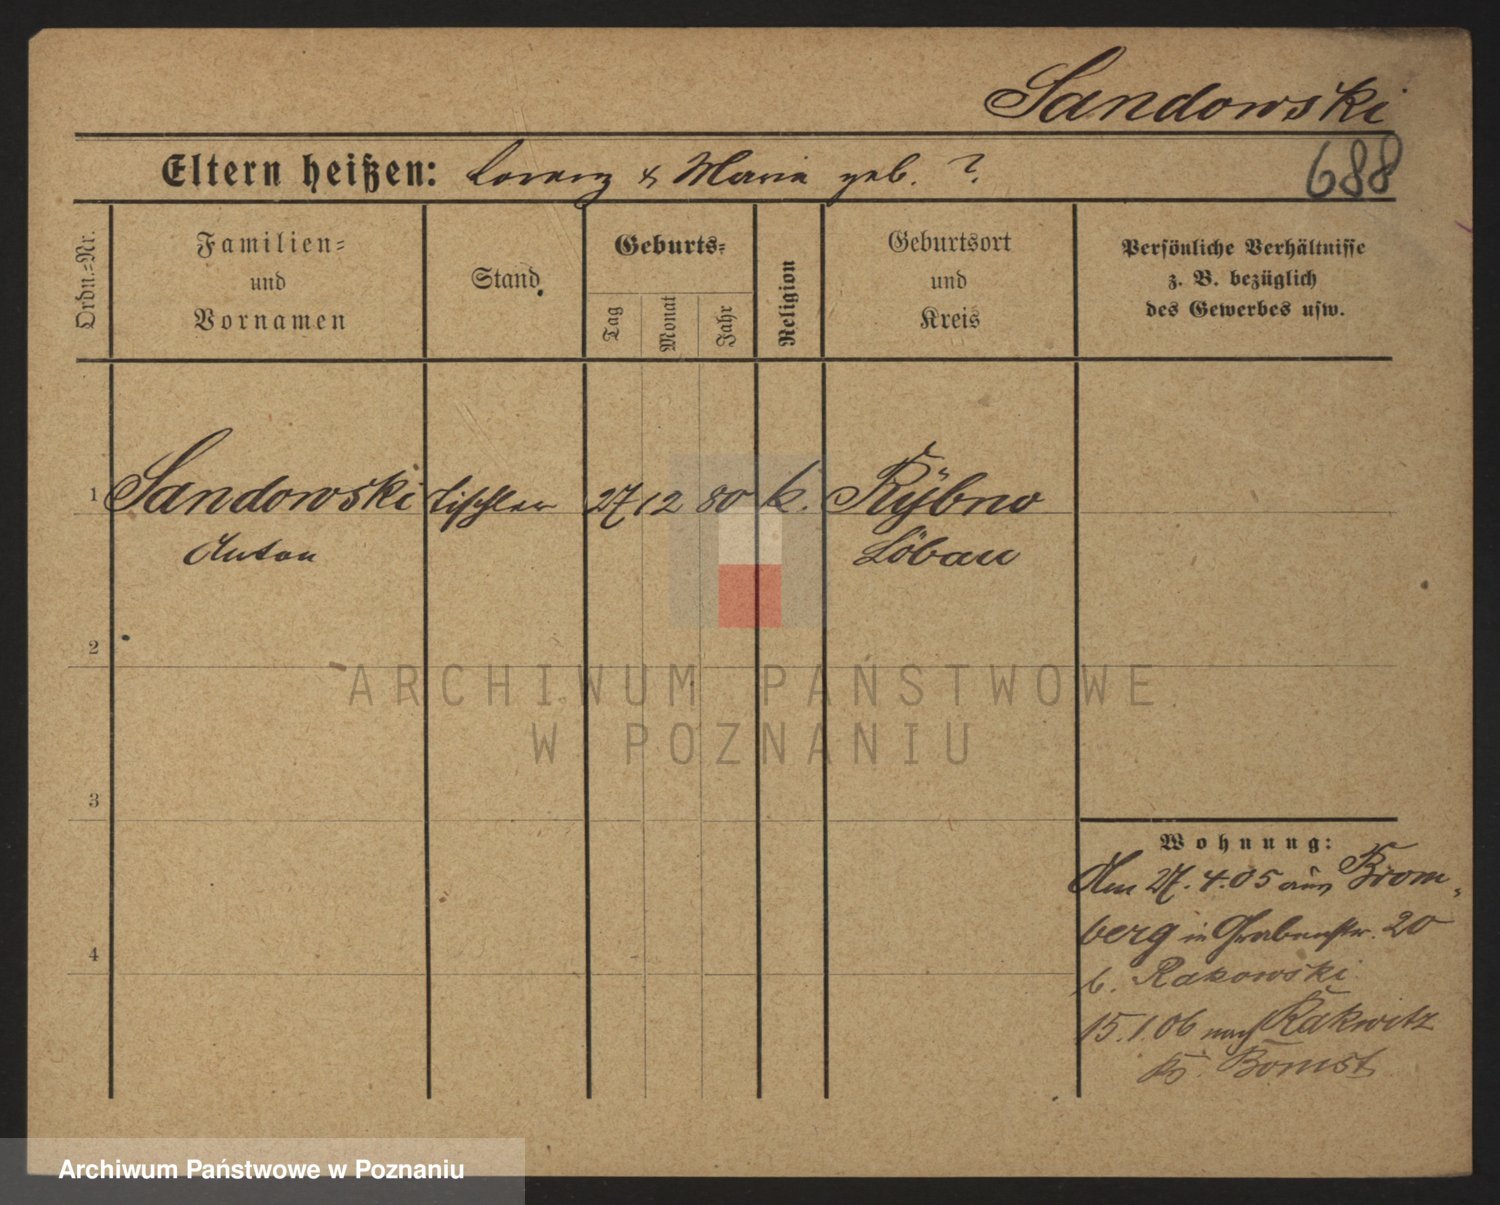 Sandowski
688
Eltern heißen: Lorenz & Maria geb. ?
Ordn.=Nr.
Familien=
und
Vornamen
Stand
Geburts=
Tag
Monat
Jahr
Religion
Geburtsort
und
Kreis
Persönliche Verhältnisse
z. B. bezüglich
des Gewerbes usw.
1 Sandowski Tischler 27 12 80 k. Rÿbno
Anton Löbau
2
3
4
Wohnung:
Am 27.4.05 aus Brom-
berg in Grabenstr. 20
b. Rakowski
15.1.06 nach Rakwitz
Kr. Bomst
ARCHIWUM PAŃSTWOWE
W POZNANIU
Archiwum Państwowe w Poznaniu